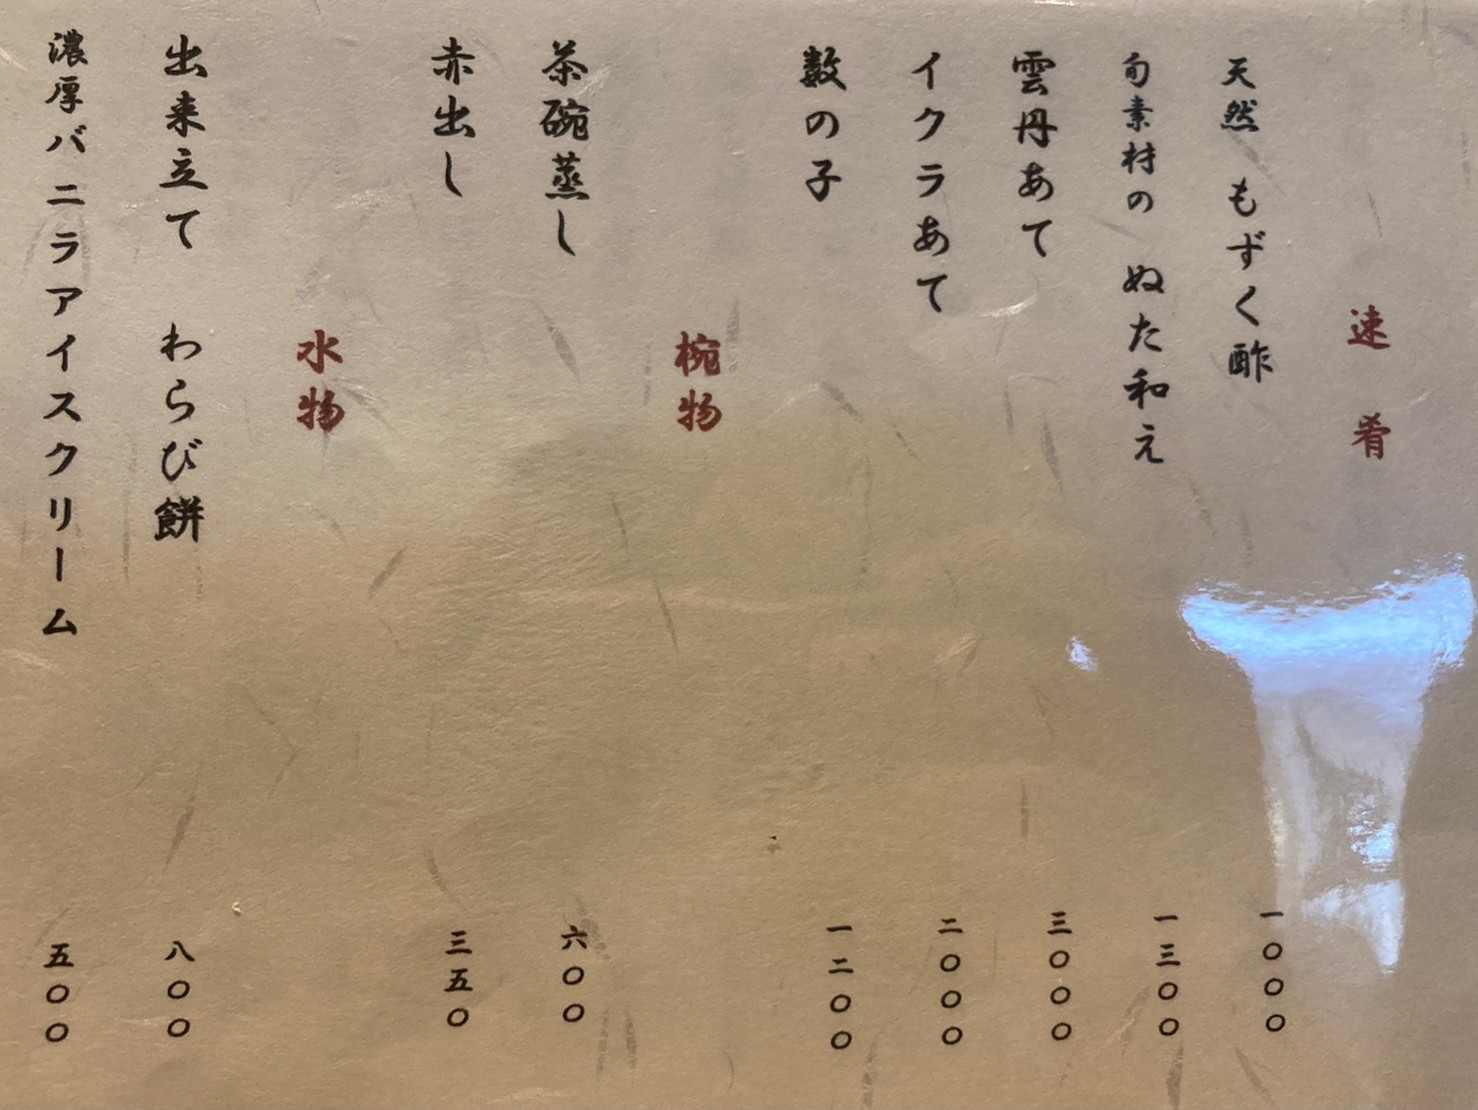 速 肴
天然 もずく酢 一〇〇〇
旬素材の ぬた和え 一三〇〇
雲丹あて 三〇〇〇
イクラあて 二〇〇〇
数の子 一二〇〇
椀物
茶碗蒸し 六〇〇
赤出し 三五〇
水物
出来立て わらび餅 八〇〇
濃厚バニラアイスクリーム 五〇〇